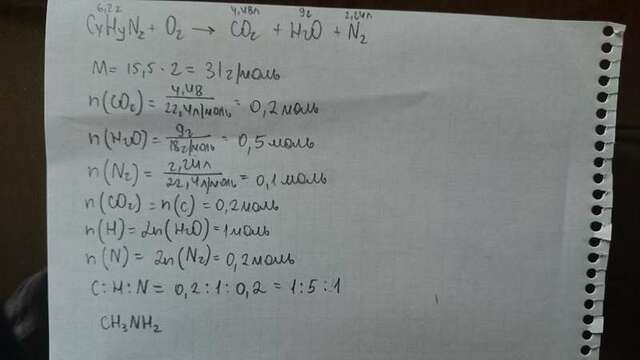 6,2г 4,48л 9г 2,24л
CxHyNz + O2 → CO2 + H2O + N2
M = 15,5 · 2 = 31 г/моль
n(CO2) = 4,48 / 22,4л/моль = 0,2 моль
n(H2O) = 9г / 18г/моль = 0,5 моль
n(N2) = 2,24л / 22,4л/моль = 0,1 моль
n(CO2) = n(C) = 0,2 моль
n(H) = 2n(H2O) = 1 моль
n(N) = 2n(N2) = 0,2 моль
C : H : N = 0,2 : 1 : 0,2 = 1 : 5 : 1
CH3NH2